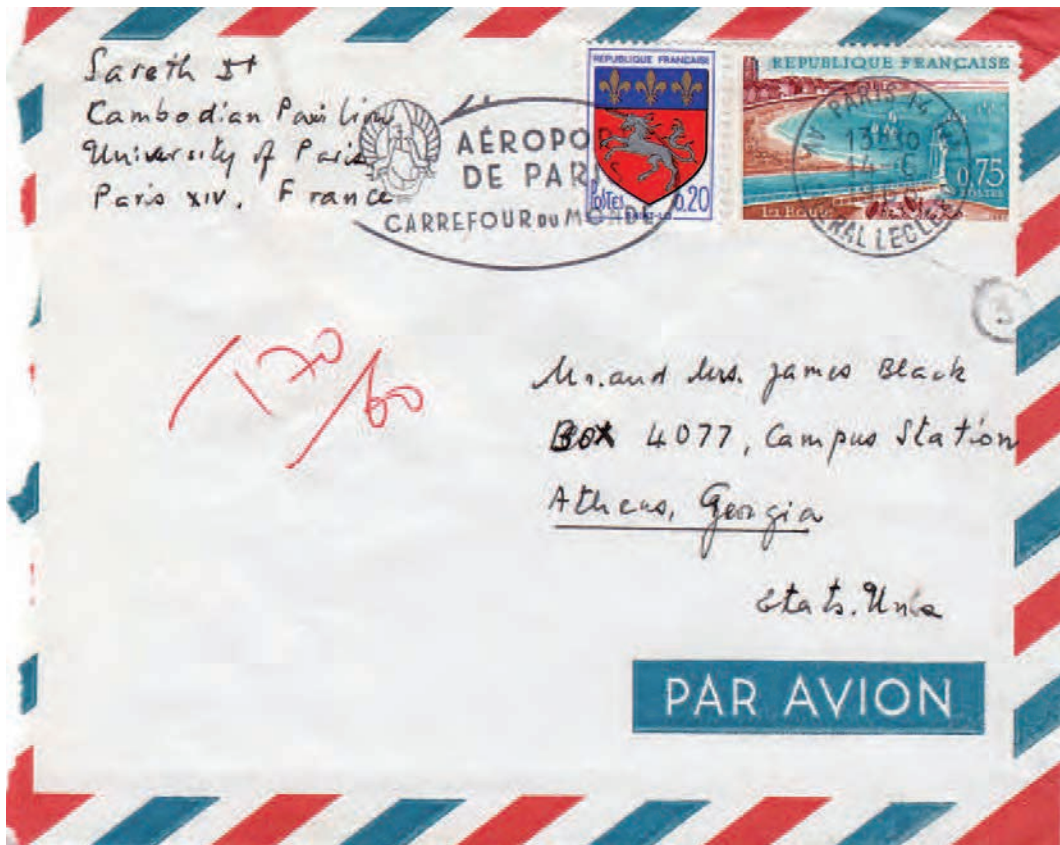 Sareth It
Cambodian Pavilion
University of Paris
Paris XIV, France
AÉROPO
DE PARI
CARREFOUR DU MONDE
REPUBLIQUE FRANÇAISE
POSTES
0.20
REPUBLIQUE FRANÇAISE
0,75
POSTES
PARIS 14
13H30
14-
RAL LECLE
T 70/60
Mr. and Mrs. James Black
Box 4077, Campus Station
Athens, Georgia
Etats. Unis
PAR AVION